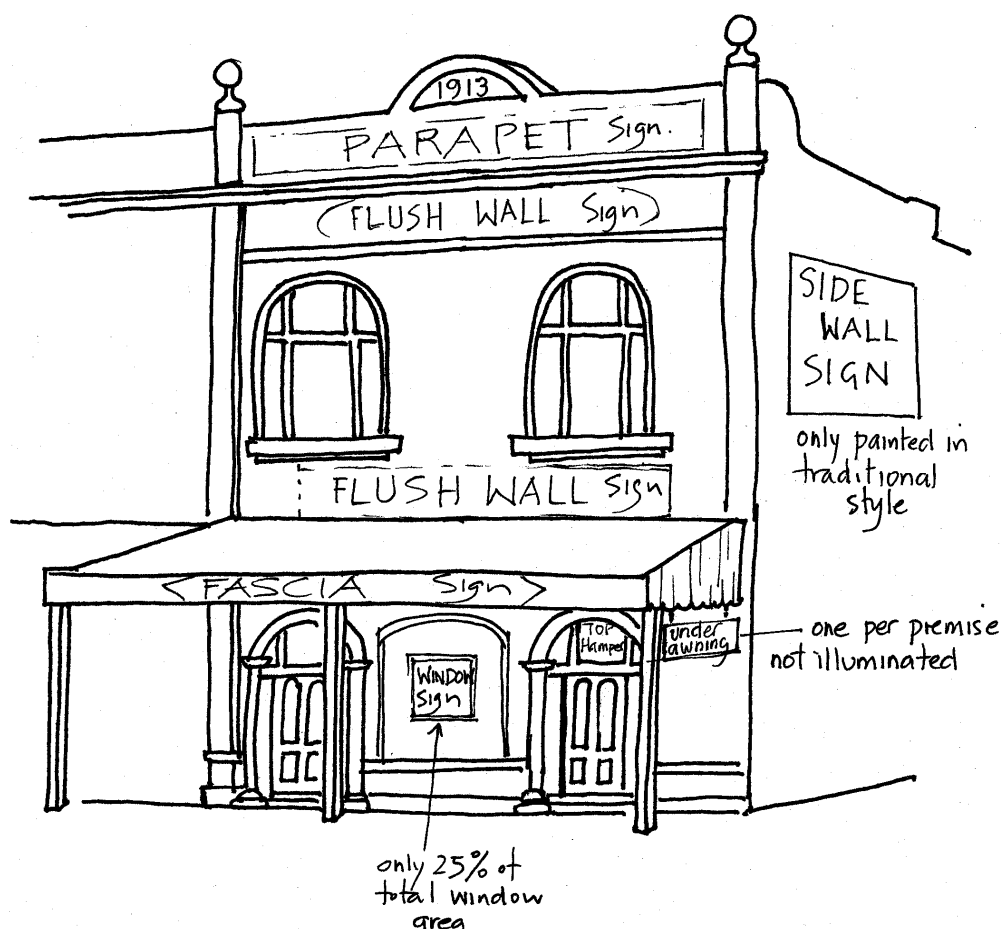 1913
PARAPET Sign.
(FLUSH WALL Sign)
SIDE
WALL
SIGN
only painted in
traditional
style
FLUSH WALL Sign
<FASCIA Sign>
TOP
Hamper
under
awning
one per premise
not illuminated
WINDOW
Sign
only 25% of
total window
area